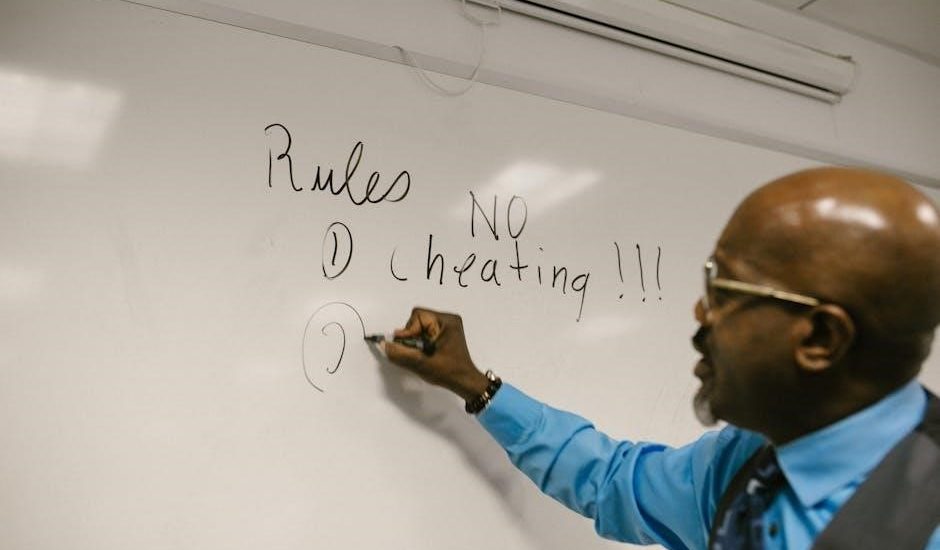 Rules
NO
① cheating !!!